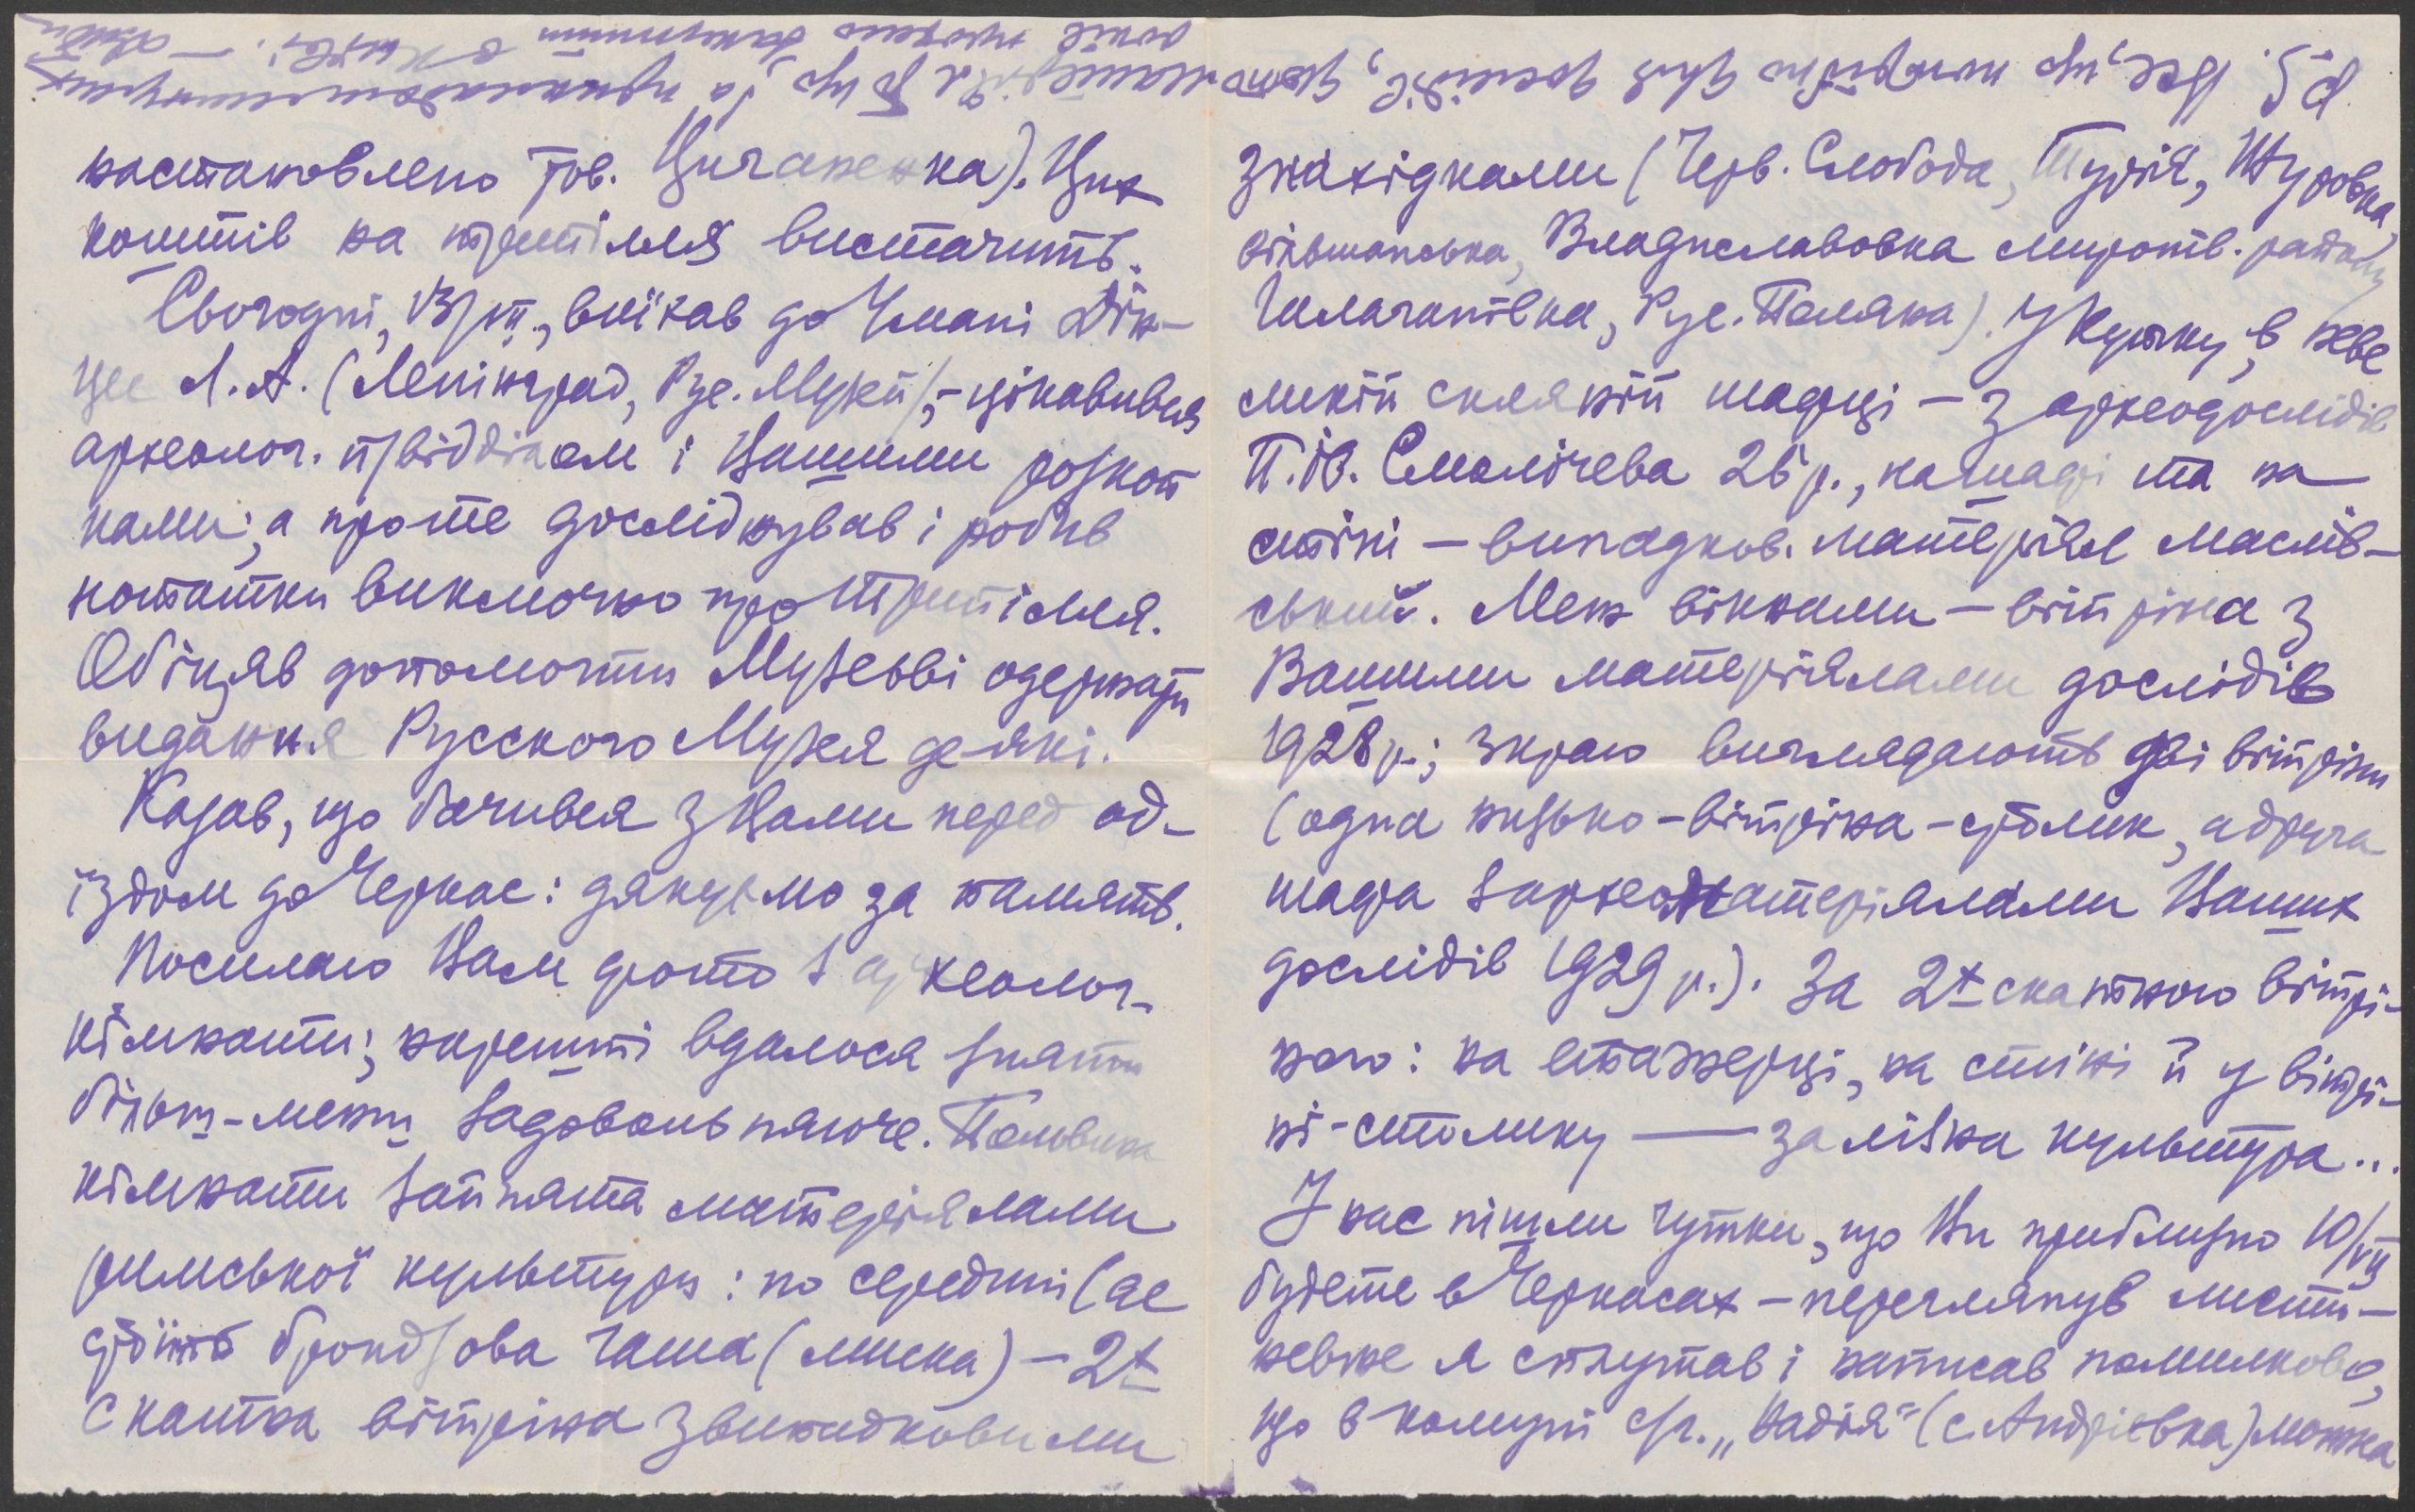 настановлено тов. Циганенка). Цих
коштів на трипілля вистачить.
Сьогодні, 13/VII., виїхав до Умані Дін-
цес Л. А. (Ленінград, Рус. Музей), – цікавився
археолог. п/відділом і Вашими розкоп
ками; а проте досліджував і робив
нотатки виключно про Трипілля.
Обіцяв допомогти Музеєві одержати
видання Русского Музея де-які.
Казав, що бачився з Вами перед од-
їздом до Черкас: дякуємо за память.
Посилаю Вам фото з археолог.
кімнати; нарешті вдалося зняти
більш-менш задовольняюче. Половина
кімнати зайнята матеріялами
римської культури: по середині (де
стоїть бронзова чаша (миска) – 2х
скатна вітріна з випадковими
знахідками (Черв. Слобода, Турія, Журовка,
Вільшанська, Владиславовка миронів. району
Шелагатівка, Рус. Поляна). У кутку, в неве
ликій скляній шафці – з археодослідів
П. Ів. Смолічева 26 р., на шафі та на
стіні – випадков. матеріял маслів-
ський. Меж вікнами – вітріна з
Вашими матеріялами дослідів
1928 р.; з краю виглядають дві вітріни
(одна низько-вітріна-столик, а друга
шафа з археоматеріялами Ваших
дослідів 1929 р.). За 2х скатною вітрі-
ною: на етажерці, на стіні й у вітрі-
ні-столику — залізна культура...
У нас пішли чутки, що Ви приблизно 10/VII
будете в Черкасах – переглянув листи –
невже я сплутав і написав помилково,
що в комуні с/г. „Надія" (с. Андріївка) можна
P.S. Все, що